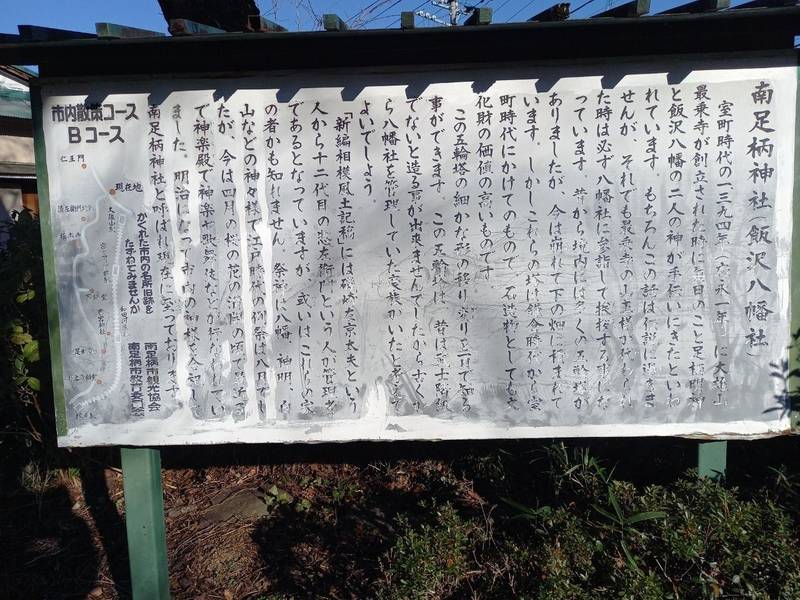 南足柄神社(飯沢八幡社)
室町時代の一三九四年(応永一年)に大雄山
最乗寺が創立された時に毎日のごと足柄明神
と飯沢八幡の二人の神が手伝いにきたといわ
れています。もちろんこの話は伝説に過ぎま
せんが、それでも最乗寺の
た時は必ず八幡社に参詣して挨拶する
っています。昔から境内には多くの五輪塔が
ありましたが、今は崩れて下の畑に積まれて
います。しかしこれらの塔は鎌倉時代から室
町時代にかけてのもので、石造物としても文
化財の価値の高いものです
この五輪塔の細かな形の移り変りを一目で知る
事ができます。この五輪塔は、昔は武士階級
でないと造る事が出来ませんでしたからおそらく
ら八幡社を管理していた家族がいたと見て
よいでしょう。
「新編相模風土記稿」には磯崎左京太夫という
人から十二代目の忠左衛門という人が管理者
であるとなっていますが、或いはこれらの家
の者かも知れません。祭神は八幡、神明、
山などの神々様で江戸時代の例祭は八月でし
たが、今は四月の桜の花の満開の頃で
で神楽殿で神楽や歌舞伎などが行なわれてい
ました。明治になって市内の神様を合祀して
南足柄神社と呼ばれ現在に至っております。
市内散策コース
Bコース
仁王門
現在地
かくれた市内の名所旧跡を
たずねてみませんか
南足柄市観光協会
南足柄市教育委員会